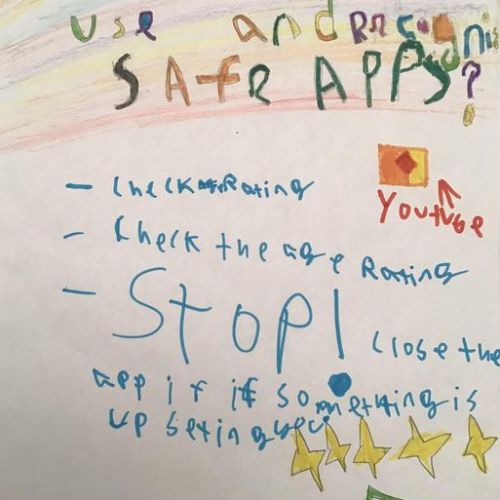 use and recognis
SAfe APPS?
- check the Rating
Youtube
- Check the age Rating
- STOP! close the
app if if something is
upseting you.